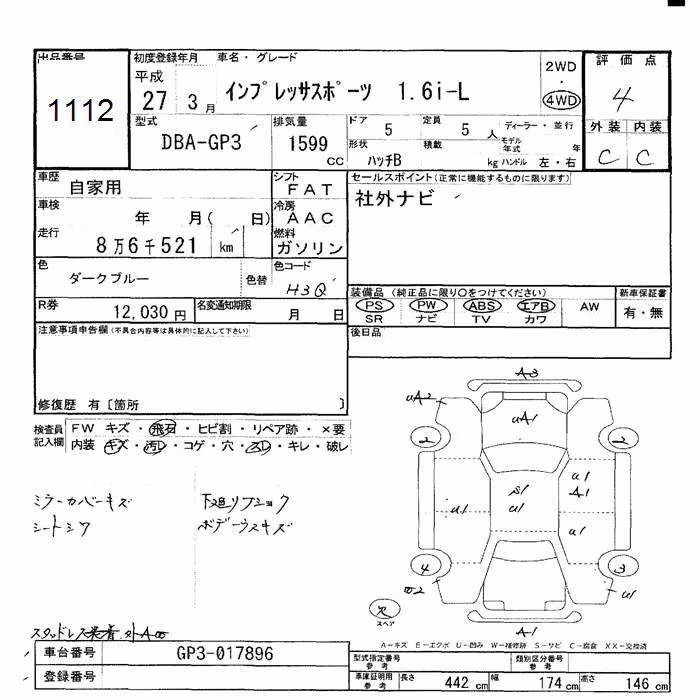 出品番号 初度登録年月 車名・グレード 2WD ・ 4WD 評価点
1112 平成 27 3月 インプレッサスポーツ 1.6i-L 4
型式 排気量 ドア 定員 ディーラー・並行 外装 内装
DBA-GP3 1599 cc 5 5人 モデル年式 年 C C
形状 ハッチB 積載 kg ハンドル 左・右
車歴 自家用 シフト FAT セールスポイント(正常に機能するものに限ります)
車検 年 月( 日) 冷房 AAC 社外ナビ
走行 8万6千521 km 燃料 ガソリン
色 ダークブルー 色替 色コード H3Q
装備品 (純正品に限り○をつけてください) 新車保証書
PS PW ABS エアB AW 有・無
SR ナビ TV カワ
R券 12,030円 名変通知期限 月 日
後日品
注意事項申告欄(不具合内容等は具体的に記入して下さい)
修復歴 有〔箇所 〕
検査員記入欄 FW キズ・飛石・ヒビ割・リペア跡・×要
内装 キズ・汚レ・コゲ・穴・スレ・キレ・破レ
ミラーカバーキズ 下廻リフショク
シートシワ ボデーウスキズ
A3
uA2
uA1
2 2
u1
S1 A1
u1 u1
u1
4 3
u1
欠
スペア
A1
A-キズ E-エクボ U-凹み W-補修跡 S-サビ C-腐食 XX-交換済
車台番号 GP3-017896 型式指定番号 参考 類別区分番号 参考
登録番号 車庫証明用 参考 長さ 442 cm 幅 174 cm 高さ 146 cm